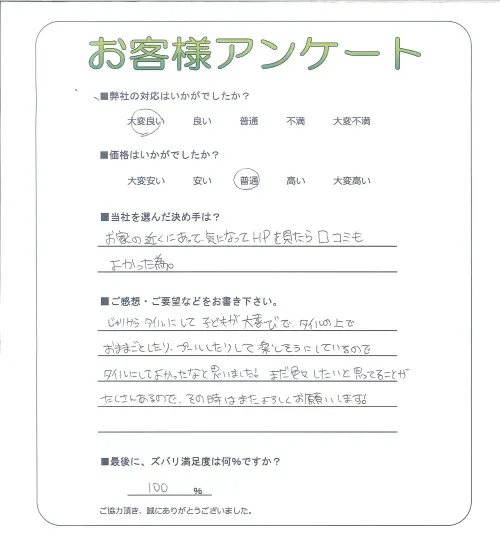 お客様アンケート
■弊社の対応はいかがでしたか？
大変良い 良い 普通 不満 大変不満
■価格はいかがでしたか？
大変安い 安い 普通 高い 大変高い
■当社を選んだ決め手は？
お家の近くにあって気になってHPを見たら口コミも
よかった為。
■ご感想・ご要望などをお書き下さい。
じゃりからタイルにして子どもが大喜びで、タイルの上で
おままごとしたり、プールしたりして楽しそうにしているので
タイルにしてよかったなと思いました! まだ色々したいと思ってることが
たくさんあるので、その時はまたよろしくお願いします!
■最後に、ズバリ満足度は何%ですか？
100 %
ご協力頂き、誠にありがとうございました。